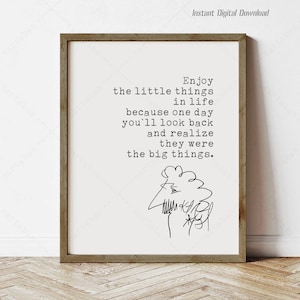 Instant Digital Download
Enjoy
the little things
in life
because one day
you'll look back
and realize
they were
the big things.